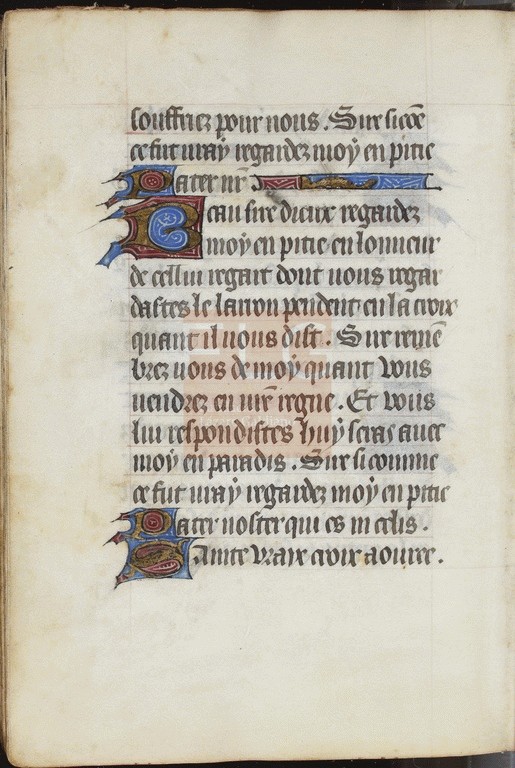 souffriez pour nous. Sire sicõe
ce fut uray regardez moy en pitie
Pater nr̃.
Beau sire dieux regardez
moy en pitie en lonneur
de cellui regart dont uous regar
dastes le larron pendent en la croix
quant il uous dist. Sire remẽ
brez uous de moy quant vous
uendrez en urẽ regne. Et vous
lui respondistes huy seras auec
moy en paradis. Sire si comme
ce fut uray regardez moy en pitie
Pater noster qui es in celis.
Saincte vraye croix aouree.